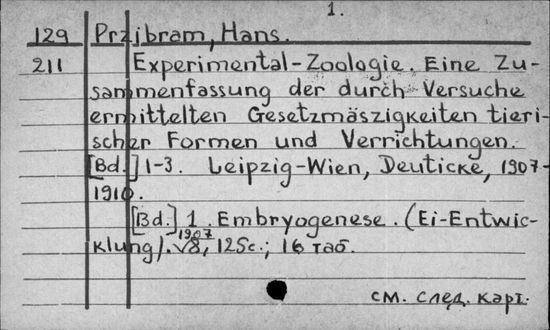 1.
129 Przibram, Hans.
211 Experimental-Zoologie. Eine Zu-
sammenfassung der durch Versuche
ermittelten Gesetzmäszigkeiten tieri-
scher Formen und Verrichtungen.
[Bd.] 1-3. Leipzig-Wien, Deuticke, 1907-
1910.
[Bd.] 1. Embryogenese. (Ei-Entwic-
klung). 1907
8, 125с.; 16 таб.
см. след. карт.